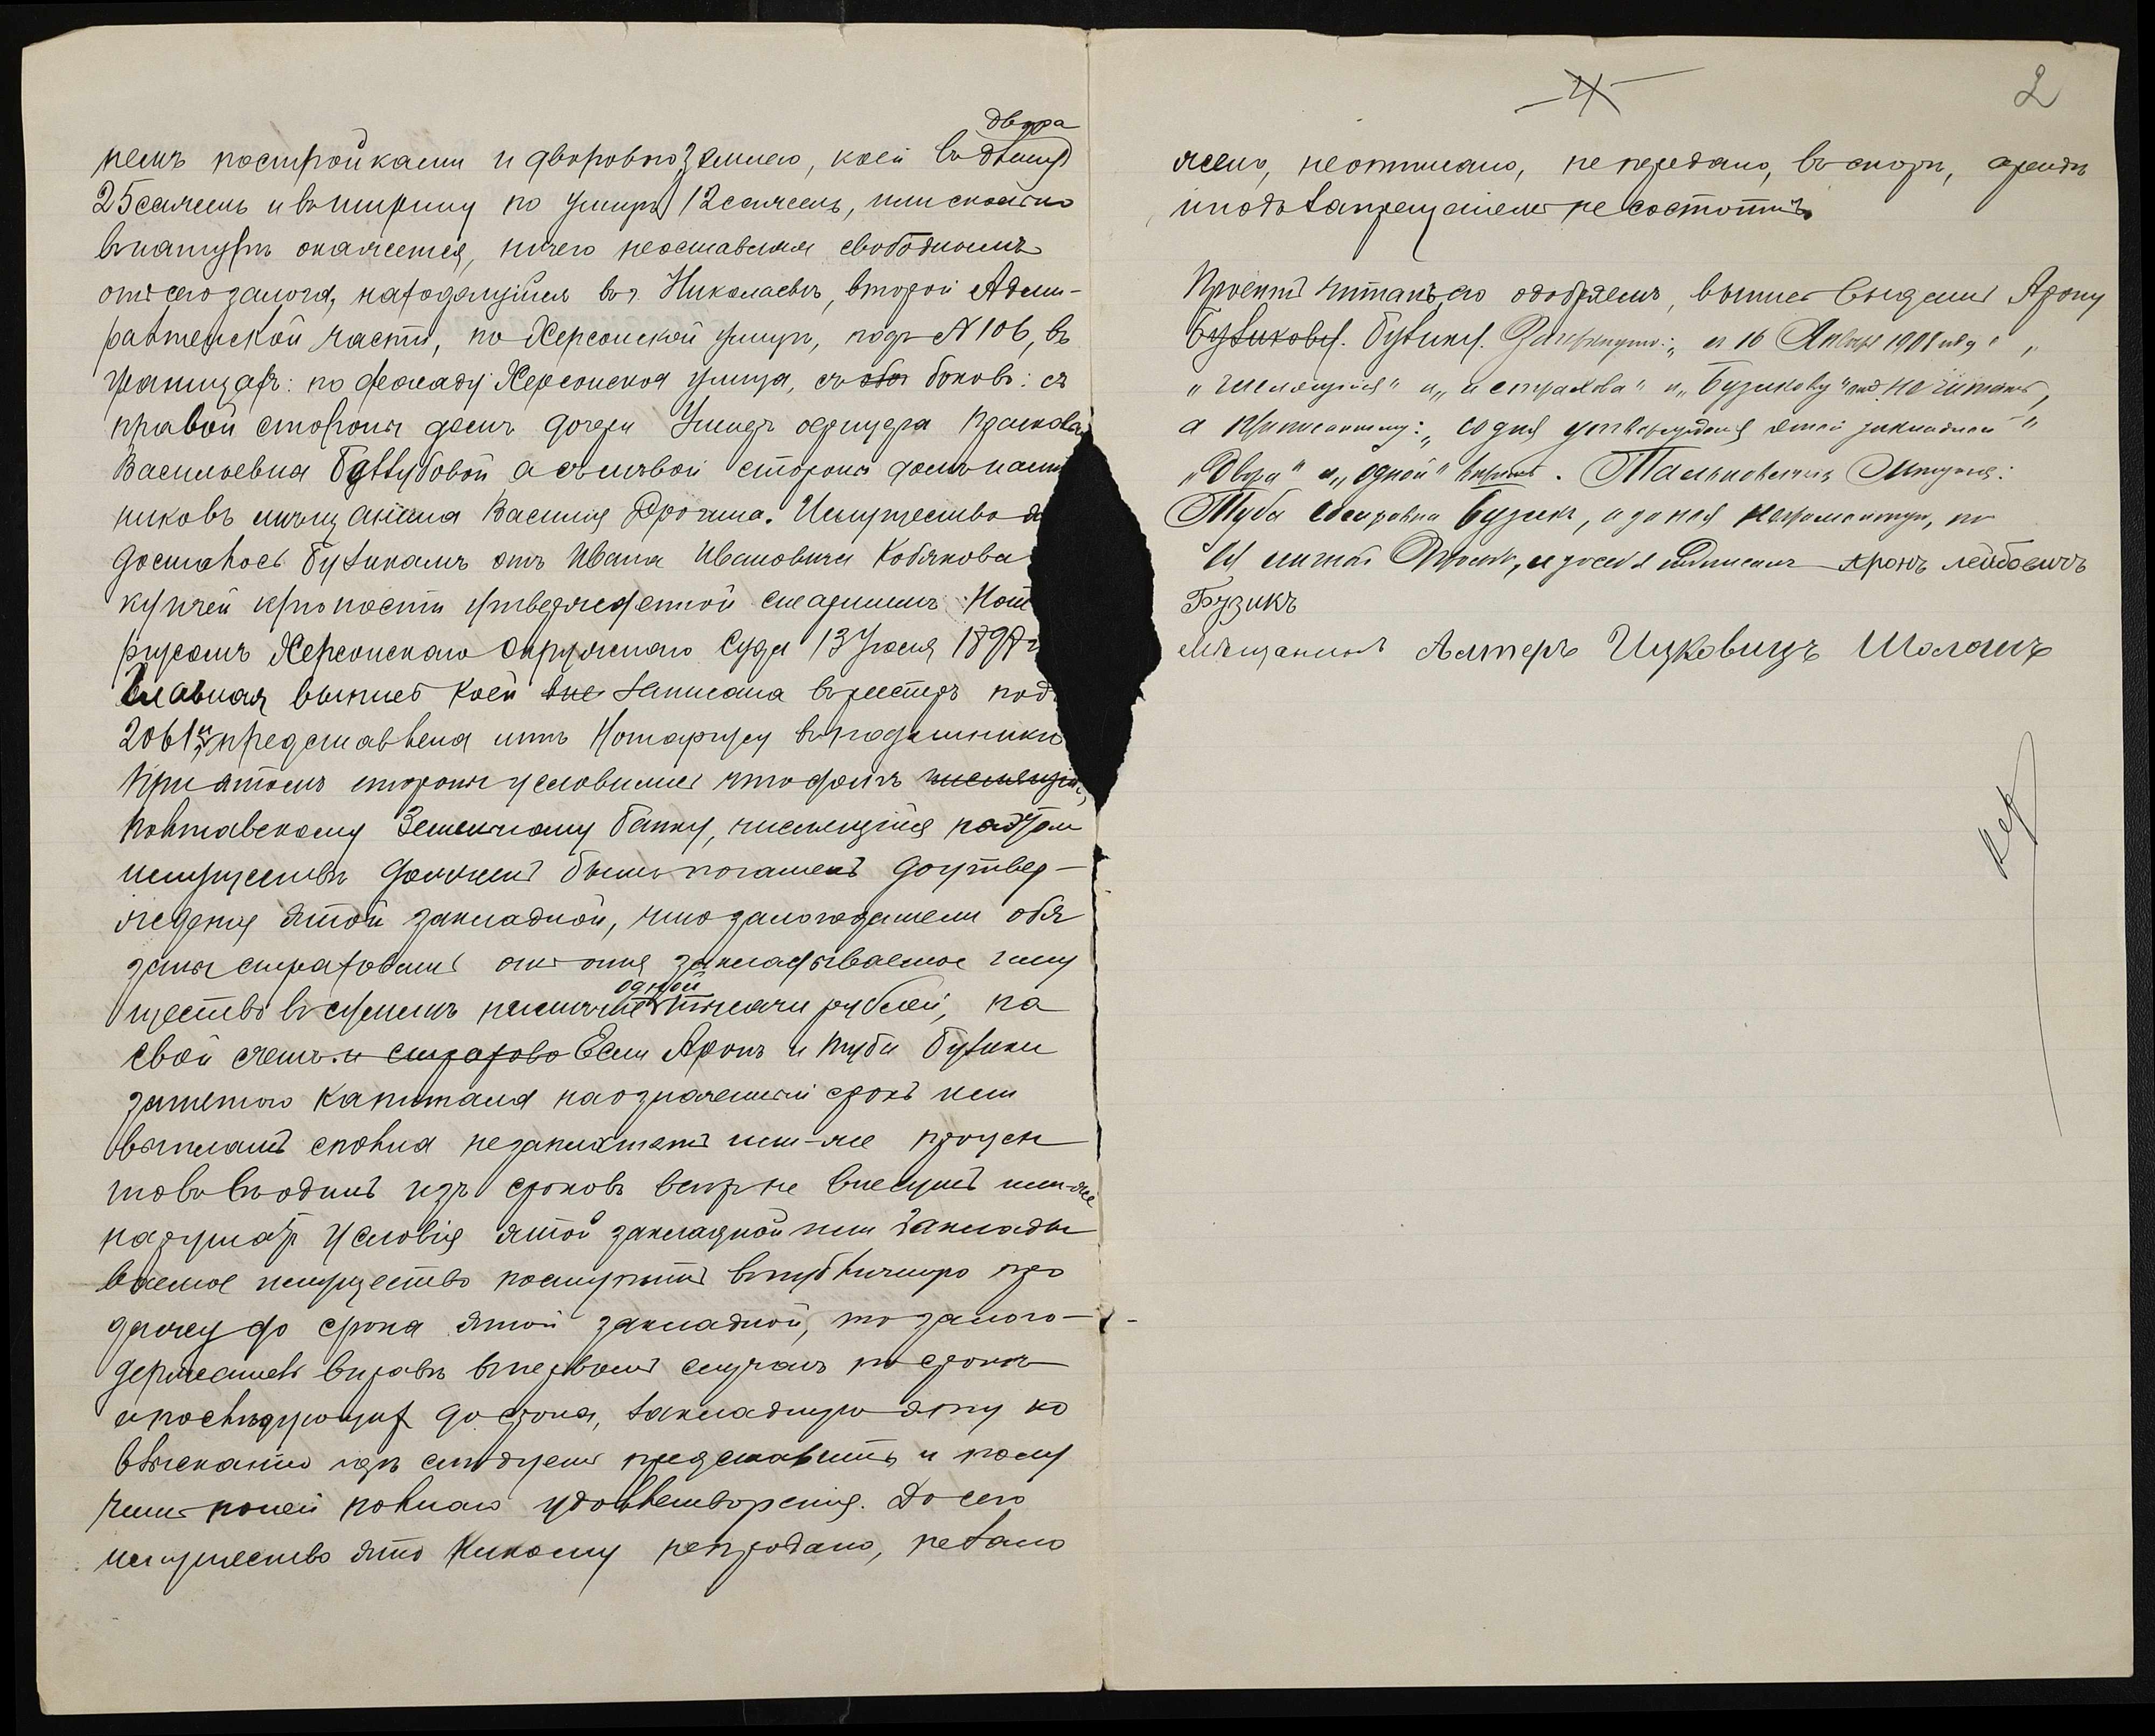 двора
немъ постройками и дворовою землею, коей въ длину
25 сажень и въ ширину по улицѣ 12 сажень, или сколько
въ натурѣ окажется, ничего неоставляя свободнымъ
отъ сего залога, находящуюся въ г. Николаевѣ, второй Адми-
ралтейской части, по Херсонской улицѣ, подъ № 106, въ
границахъ: по фасаду Херсонская улица, съ боковъ: съ
правой стороны домъ дочери Унтеръ офицера
Васильевна а съ лѣвой стороны домъ наслѣд
никовъ мѣщанина Василія Дрогина. Имущество
досталось Бузикамъ отъ Ивана Ивановича Кобякова
купчей крѣпости утвержденной старшимъ Нота
ріусомъ Херсонскаго Окружнаго Суда 13 Іюля 189
Главная выпись коей записана въ реестръ подъ
2061 и представлена имъ Нотаріусу въ подлинникѣ
При этомъ стороны условились что долгъ числящійся
Полтавскому Земельному банку, числящійся на этом
имуществѣ долженъ быть погашенъ до утвер-
жденія этой закладной, что залогодатели обя
заны страховать отъ огня закладываемое иму
одной
щество въ суммѣ неменѣе тысячи рублей, на
свой счетъ и страхова Если Аронъ и Туба Бузики
занятого капитала на означенный срокъ или
выплатъ сполна незаплатятъ или-же процен
товъ въ одинъ изъ сроковъ вепръ не внесутъ или-же
нарушатъ условія этой закладной или заклады
ваемое имущество поступитъ въ публичную про
дажу до срока этой закладной, то залого-
держатель вправѣ въ первомъ случаѣ по срокѣ
а послѣдующихъ до срока, закладную эту ко
взысканію гдѣ слѣдуетъ представить и полу
чить по ней полнаго удовлетворенія. До сего
имущество это никому непродано, незало

4
2
жено, неотписано, непередано, въ спорѣ, арендѣ
и подъ запрещеніемъ несостоитъ.
Проектъ читанъ, его одобряемъ, выпись выдать Арону
Бузикову. Бузику. Зачеркнуто: „и 16 Января 1901 года“,
„числящійся“ и „и страхова“ и „Бузикову“ не читать,
а приписанному: „со дня утвержденія этой закладной“
„Двора“ и „одной“ вѣрить.
Туба Бузикъ, а за нея неграмотную, по
ея личной просьбѣ, и за себя подписалъ Аронъ Лейбовичъ
Бузикъ
Мѣщанинъ Алтеръ Ицковичъ Шоломъ